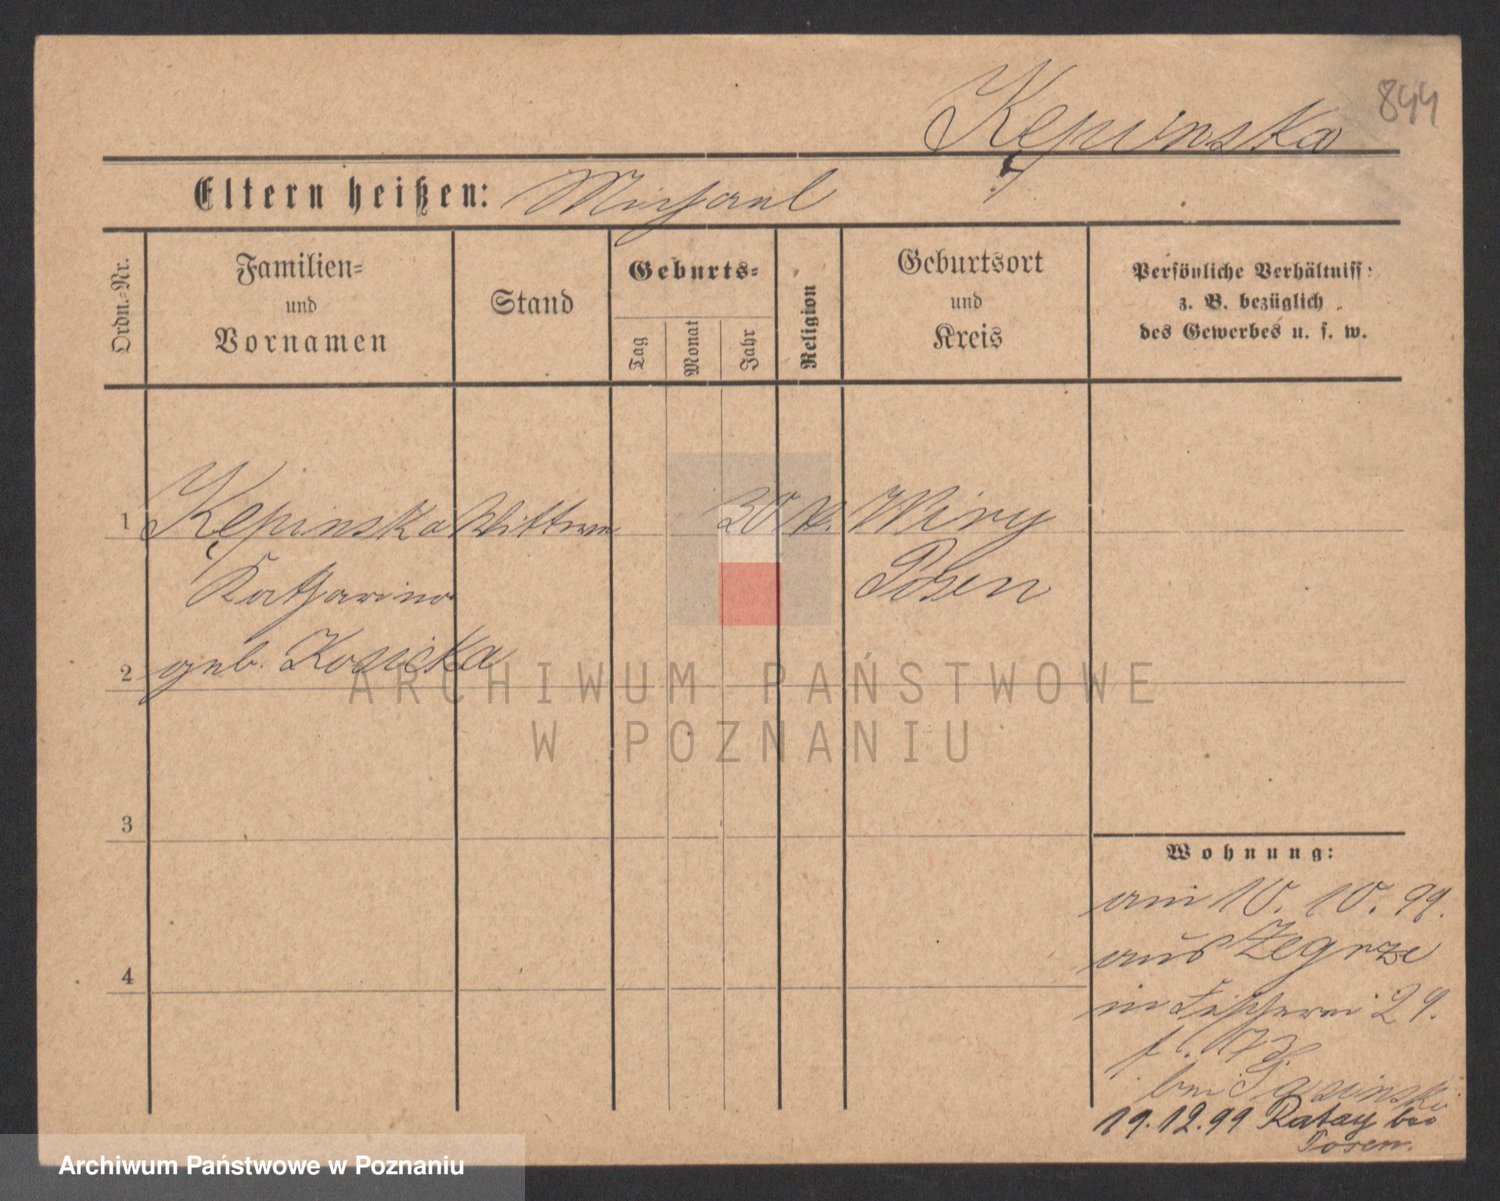 844
Kępinska
Eltern heißen: Michael
Ordn.-Nr.
Familien-
und
Vornamen
Stand
Geburts-
Tag
Monat
Jahr
Religion
Geburtsort
und
Kreis
Persönliche Verhältniss:
z. B. bezüglich
des Gewerbes u. s. w.
1 Kępinska Wittwe 30 k. Wiry
Katharina Posen
2 geb. Kosicka
ARCHIWUM PAŃSTWOWE
W POZNANIU
3
4
Wohnung:
am 10. 10. 99.
aus Zegrze
in Fischerei 29.
bei Jasinski
19.12.99 Ratay bei
Posen.
Archiwum Państwowe w Poznaniu